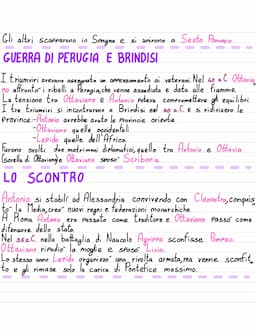 Gli altri scapparono in Spagna e si unirono a Sesto Pompeo.
GUERRA DI PERUGIA E BRINDISI
I triumviri avevano assegnato un appezzamento ai veterani. Nel 40 a.C Ottavia
no affrontò i ribelli a Perugia, che venne assediata e data alle fiamme.
La tensione tra Ottaviano e Antonio poteva compromettere gli equilibri.
I tre triumviri si incontrarono a Brindisi nel 40 a.C e si ridivisero le
province: -Antonio avrebbe avuto le provincie oriente
-Ottaviano quelle occidentali
-Lepido quelle dell'Africa.
Furono svolti due matrimoni diplomatici, quello tra Antonio e Ottavia
(sorella di Ottaviano). Ottaviano sposò Scribonia.
LO SCONTRO
Antonio si stabilì ad Alessandria convivendo con Cleopatra, conqui
tò la Media, creò nuovi regni e federazioni monarchiche.
A Roma Antonio era passato come traditore e Ottaviano passò come
difensore dello stato.
Nel 36 a.C nella battaglia di Nauloco Agrippa sconfisse Pompeo.
Ottaviano ripudiò la moglie e sposò Livia.
Lo stesso anno Lepido organizzò una rivolta armata, ma venne sconfit
to e gli rimase solo la carica di Pontefice massimo.